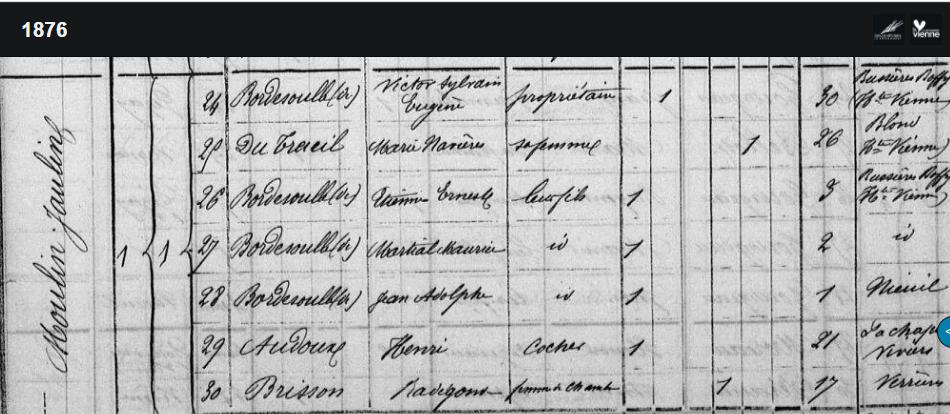 1876
vienne
Moulin Jaulin
1 1
24 Bordesoulle (de) Victor Sylvain Eugène propriétaire 1 30 Bussières Boffy (Hte Vienne)
25 Du Breuil Marie sa femme 1 26 Blond (Hte Vienne)
26 Bordesoulle (de) Etienne Ernest leur fils 1 3 Bussières Boffy (Hte Vienne)
27 Bordesoulle (de) Martial Maurice id 1 2 id
28 Bordesoulle (de) Jean Adolphe id 1 1 Nieuil
29 Audoux Henri cocher 1 21 La chap Viviers
30 Brisson Radegonde femme de chambre 1 17 Verrières